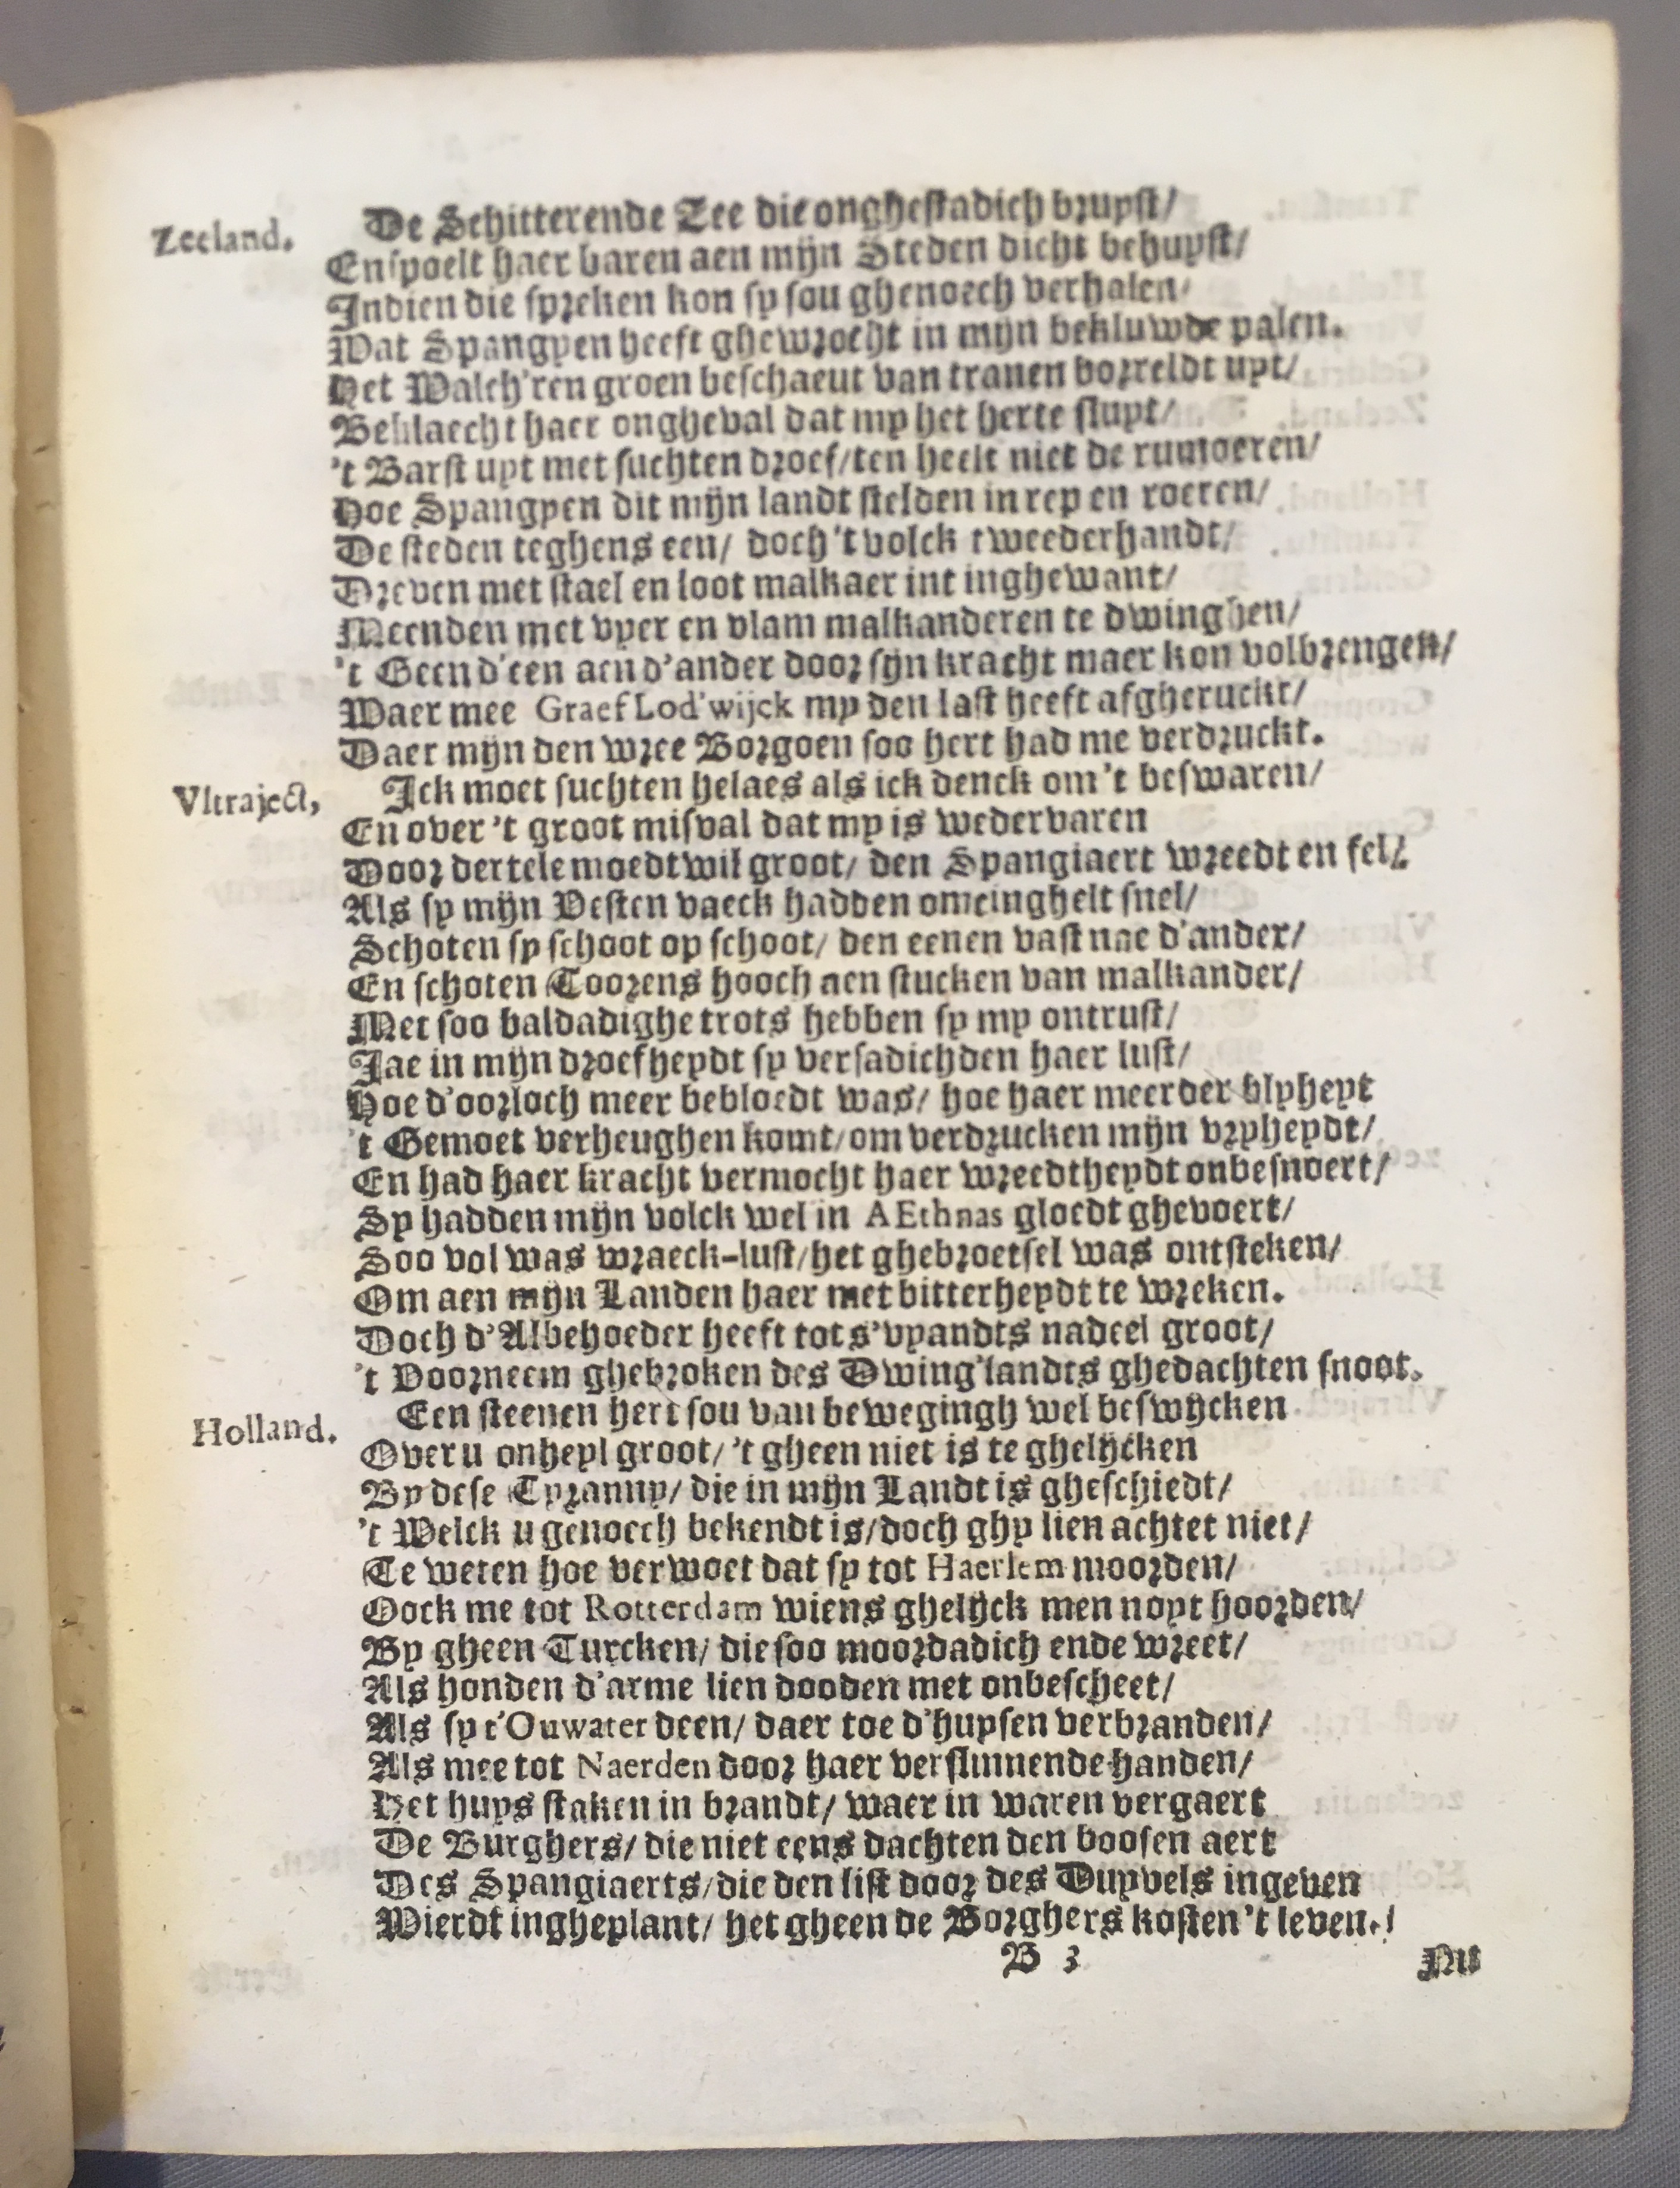 Zeeland. De Schitterende Zee die onghestadich bruyst/
En spoelt haer baren aen mijn Steden dicht behuyst/
Indien die spreken kon sy sou ghenoech verhalen/
Wat Spangyen heeft ghewrocht in mijn bekluwde palen.
Het Walch'ren groen beschaeut van tranen borreldt uyt/
Beklaecht haer ongheval dat my het herte sluyt/
't Barst uyt met suchten droef/ten heelt niet de rumoeren/
Hoe Spangyen dit mijn landt stelden in rep en roeren/
De steden teghens een/ doch 't volck tweederhandt/
Dreven met stael en loot malkaer int inghewant/
Meenden met vyer en vlam malkanderen te dwinghen/
't Geen d'een aen d'ander door sijn kracht maer kon volbrengen/
Waer mee Graef Lod'wijck my den last heeft afgheruckt/
Daer mijn den wree Borgoen soo hert had me verdruckt.
Vltraject, Ick moet suchten helaes als ick denck om 't beswaren/
En over 't groot misval dat my is wedervaren
Door dertele moedtwil groot/ den Spangiaert wreedt en fel/
Als sy mijn Vesten vaeck hadden omcinghelt snel/
Schoten sy schoot op schoot/ den eenen vast nae d'ander/
En schoten Toorens hooch aen stucken van malkander/
Met soo baldadighe trots hebben sy my ontrust/
Jae in mijn droefheydt sy versadichden haer lust/
Hoe d'oorloch meer bebloedt was/ hoe haer meerder blyheyt
't Gemoet verheughen komt/om verdrucken mijn vryheydt/
En had haer kracht vermocht haer wreedtheydt onbesnoert/
Sy hadden mijn volck wel in AEthnas gloedt ghevoert/
Soo vol was wraeck-lust/het ghebroetsel was ontsteken/
Om aen mijn Landen haer met bitterheydt te wreken.
Doch d'Albehoeder heeft tot s'vyandts nadeel groot/
't Voorneem ghebroken des Dwing'landts ghedachten snoot.
Holland. Een steenen hert sou van bewegingh wel beswijcken
Over u onheyl groot/ 't gheen niet is te ghelijcken
By dese Tyranny/ die in mijn Landt is gheschiedt/
't Welck u genoech bekendt is/doch ghy lien achtet niet/
Te weten hoe verwoet dat sy tot Haerlem moorden/
Oock me tot Rotterdam wiens ghelijck men noyt hoorden/
By gheen Turcken/ die soo moordadich ende wreet/
Als honden d'arme lien dooden met onbescheet/
Als sy t'Ouwater deen/ daer toe d'huysen verbranden/
Als mee tot Naerden door haer verslinnende handen/
Het huys staken in brandt/ waer in waren vergaert
De Burghers/ die niet eens dachten den boosen aert
Des Spangiaerts/die den list door des Duyvels ingeven
Wierdt ingheplant/ het gheen de Borghers kosten 't leven./
B 3 Nu